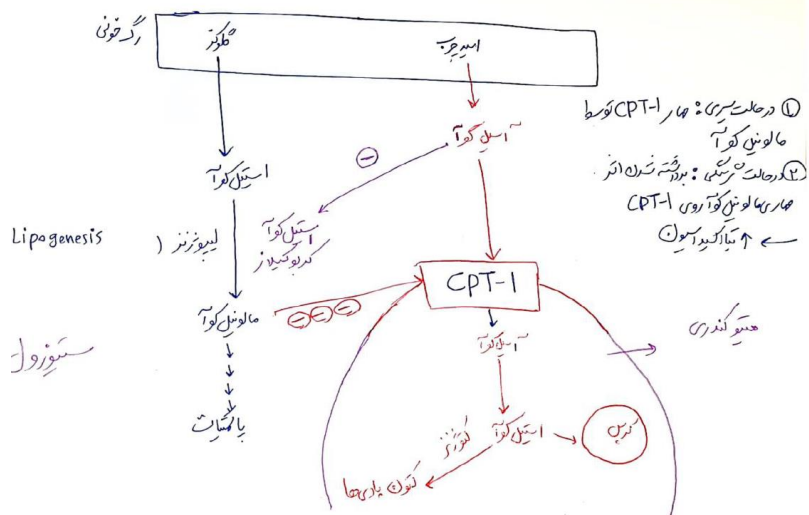 رگ خونی
گلوکز
اسید چرب
آسیل کوآ
استیل کوآ
⊖
استیل کوآ
کربوکسیلاز
Lipogenesis
لیپوژنز (
مالونیل کوآ
⊖⊖⊖
CPT-1
سیتوزول
پالمیتات
آسیل کوآ
استیل کوآ
کتوژنز
کتون بادی‌ها
کربس
میتوکندری
① در حالت سیری: مهار CPT-1 توسط
مالونیل کوآ
② در حالت گرسنگی: برداشته شدن اثر
مهاری مالونیل کوآ روی CPT-1
← ↑ بتا اکسیداسیون